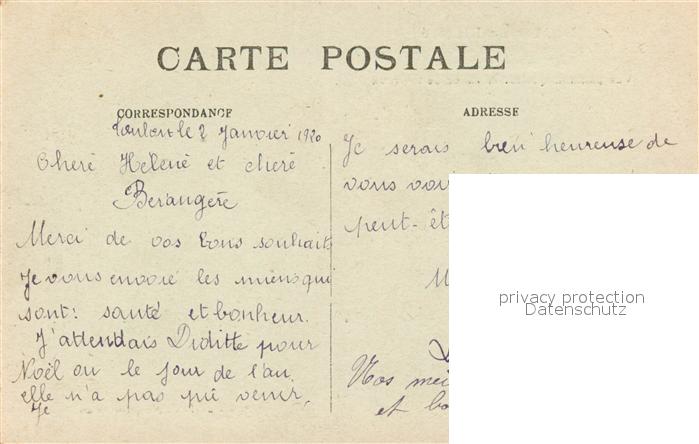 CARTE POSTALE
CORRESPONDANCE
Toulon le 2 Janvier 1920
Cheré Hélène et cheré
Berangère
Merci de vos bons souhaits
Je vous envoie les miens qui
sont: santé et bonheur.
J'attendais Diditte pour
Noël ou le jour de l'an.
elle n'a pas pu venir.
Je
ADRESSE
Je serais bien heureuse de
vous
peut-êt
Vos mei
et bo
privacy protection
Datenschutz